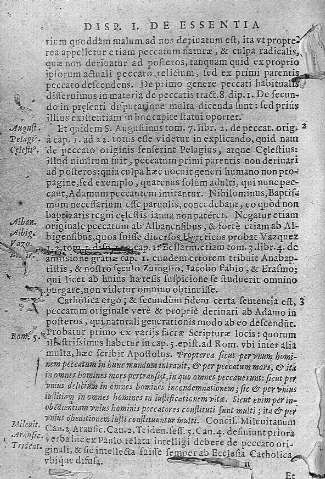 DISP. I. DE ESSENTIA
rium quoddam malum ad nos derivatum est, ita vt proprie
rea appelletur etiam peccatum naturæ, & culpa radicalis,
quæ non derivatur ad posteros, tanquam quid ex proprio
ipsorum actuali peccato relictum, sed ex primi parentis
peccato descendens. De primo genere peccati habitualis
disseruimus in materia de peccatis tract. 8. disp. 1. De secun-
do in presenti disputatione multa dicenda sunt: sed prius
illius existentiam in hoc capite statui oportet.
August.
Pelagi.
Celesti.
Et quidem S. Augustinus tom. 7. libr. 2. de peccat. orig. 2
à cap. 1. ad 22. totus esse videtur in explicando, quid nam
de peccato originis senserint Pelagius, atque Celestius:
illud nimirum fuit, peccatum primi parentis non derivari
ad posteros: quia culpa hæc nocuit generi humano non pro-
pagine, sed exemplo, quatenus solum adulti, qui nunc pec-
cant, Adamum peccantem imitantur. Nihilominus, Baptis-
mum necessarium esse parvulis, concedebant, eo quod non
baptizatis regni cælestis ianua non pateret. Negatur etiam
Alban.
Albig.
Vazq.
originale peccatum ab Albanensibus, & fortè etiam ab Al-
bigensibus, quos fuisse diversos
probat Vazquez
1. 2. tom.
cap. 1. Bellarm. etiam tom. 3. libr. 4. de
amissione gratiæ cap. 1. eumdem errorem tribuit Anabap-
tistis, & nostro sæculo Zuinglio, Iacobo Fabro, & Erasmo;
qui licet ab huius hæresis suspicione se studuerit omnino
purgare, non videtur omnino obtinuisse.
Catholica ergo, & secundum fidem certa sententia est, 3
peccatum originale verè & propriè derivari ab Adamo in
posteros, qui naturali generationis modo ab eo descendunt.
Rom. 5.
Probatur primo ex variis sacræ Scripturæ locis: quorum
illustrissimus habetur in cap. 5. epist. ad Rom. vbi inter alia
multa, hæc scribit Apostolus. Propterea sicut per vnum homi-
nem peccatum in hunc mundum intravit, & per peccatum mors, & ita
in omnes homines mors pertransiit, in quo omnes peccaverunt: sicut per
vnius delictum in omnes homines in condemnationem; sic & per vnius
iustitiam in omnes homines in iustificationem vitæ. Sicut enim per in-
obedientiam vnius hominis peccatores constituti sunt multi; ita & per
vnius obeditionem iusti constituentur multi. Concil. Milevitanum
Milevit.
Arausic.
Trident.
Can. 2. Arausic. Can. 2. Trident. sess. 5. Can. 4. desiniunt priora
verba hæc ex Paulo relata intelligi debere de peccato ori-
ginali, & sic intellecta fuisse semper ab Ecclesia Catholica
vbique diffusa.
Et